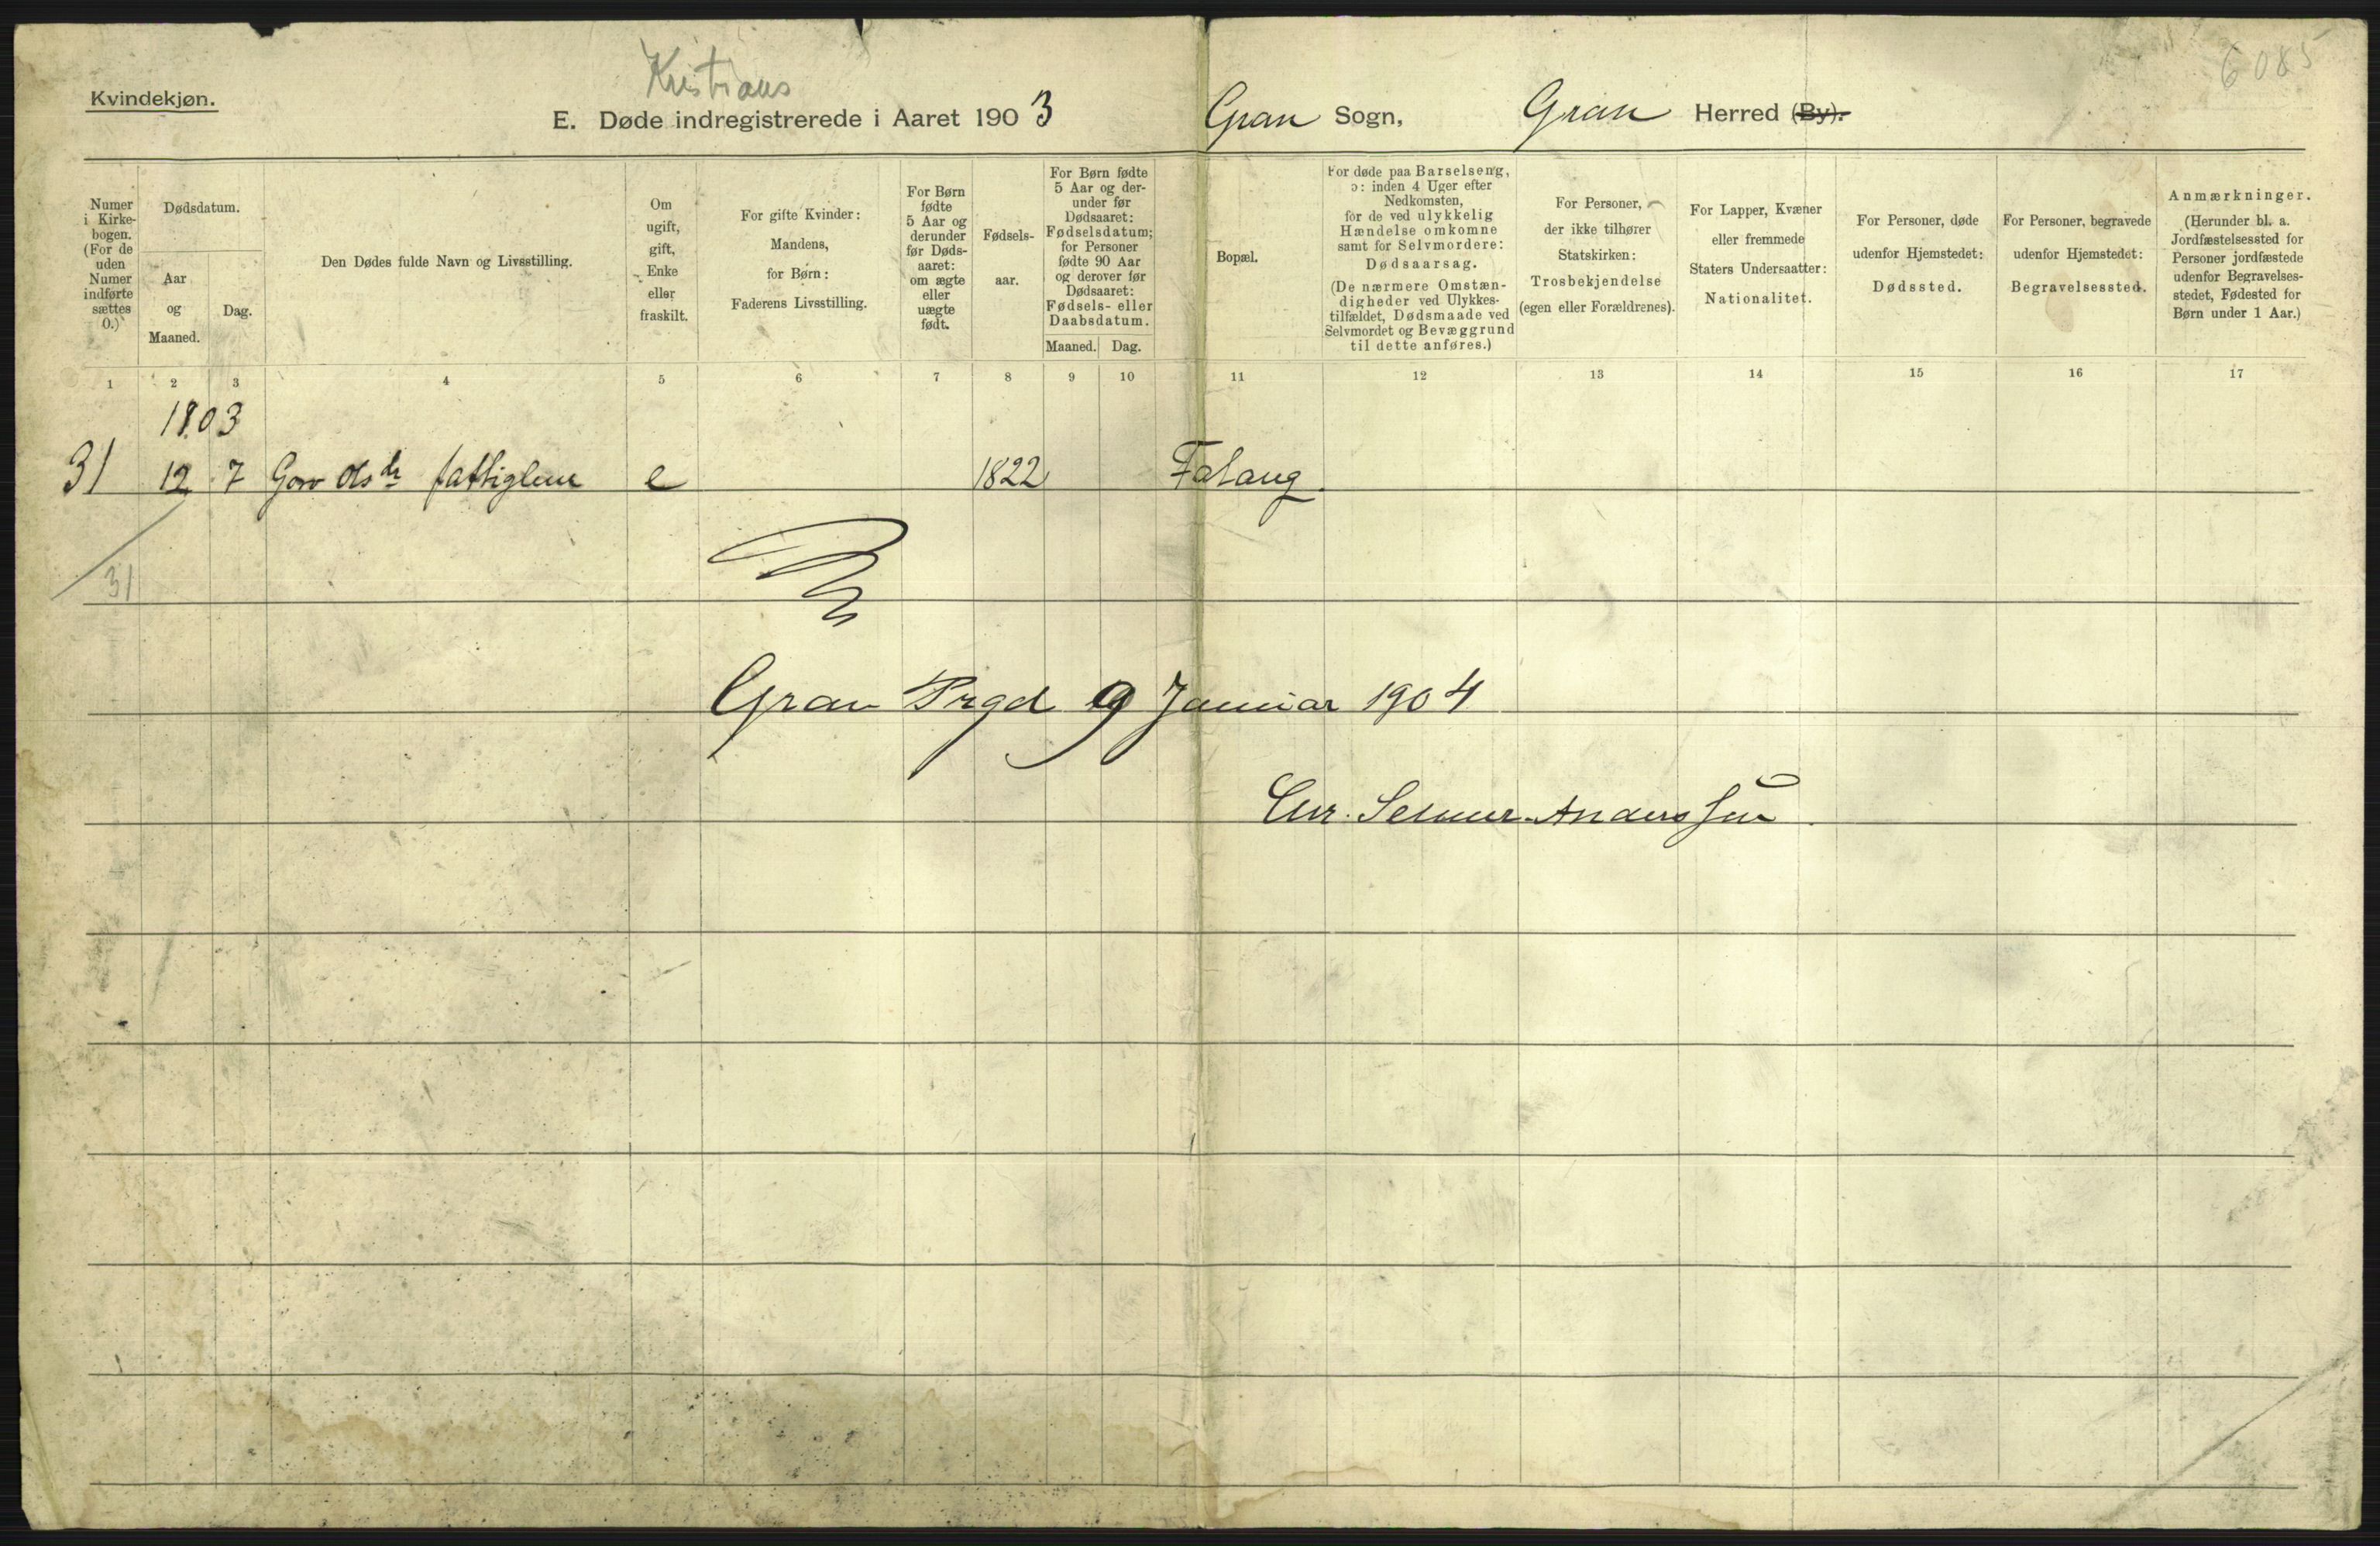 Kristians
6085
Kvindekjøn.
E. Døde indregistrerede i Aaret 1903 Gran Sogn, Gran Herred (By).
Numer
i Kirke-
bogen.
(For de
uden
Numer
indførte
sættes
0.)
Dødsdatum.
Aar
og
Maaned.
Dag.
Den Dødes fulde Navn og Livsstilling.
Om
ugift,
gift,
Enke
eller
fraskilt.
For gifte Kvinder:
Mandens,
for Børn:
Faderens Livsstilling.
For Børn
fødte
5 Aar og
derunder
før Døds-
aaret:
om ægte
eller
uægte
født.
Fødsels-
aar.
For Børn fødte
5 Aar og der-
under før
Dødsaaret:
Fødselsdatum;
for Personer
fødte 90 Aar
og derover før
Dødsaaret:
Fødsels- eller
Daabsdatum.
Maaned. Dag.
Bopæl.
For døde paa Barselseng,
ɔ: inden 4 Uger efter
Nedkomsten,
for de ved ulykkelig
Hændelse omkomne
samt for Selvmordere:
Dødsaarsag.
(De nærmere Omstæn-
digheder ved Ulykkes-
tilfældet, Dødsmaade ved
Selvmordet og Bevæggrund
til dette anføres.)
For Personer,
der ikke tilhører
Statskirken:
Trosbekjendelse
(egen eller Forældrenes).
For Lapper, Kvæner
eller fremmede
Staters Undersaatter:
Nationalitet.
For Personer, døde
udenfor Hjemstedet:
Dødssted.
For Personer, begravede
udenfor Hjemstedet:
Begravelsessted.
Anmærkninger.
(Herunder bl. a.
Jordfæstelsessted for
Personer jordfæstede
udenfor Begravelses-
stedet, Fødested for
Børn under 1 Aar.)
1 2 3 4 5 6 7 8 9 10 11 12 13 14 15 16 17
1903
31 12 7 Olsdr fattiglem e 1822 Falang
31
Gran Prgd 9 Januar 1904
Chr. Selmer-Anderssen